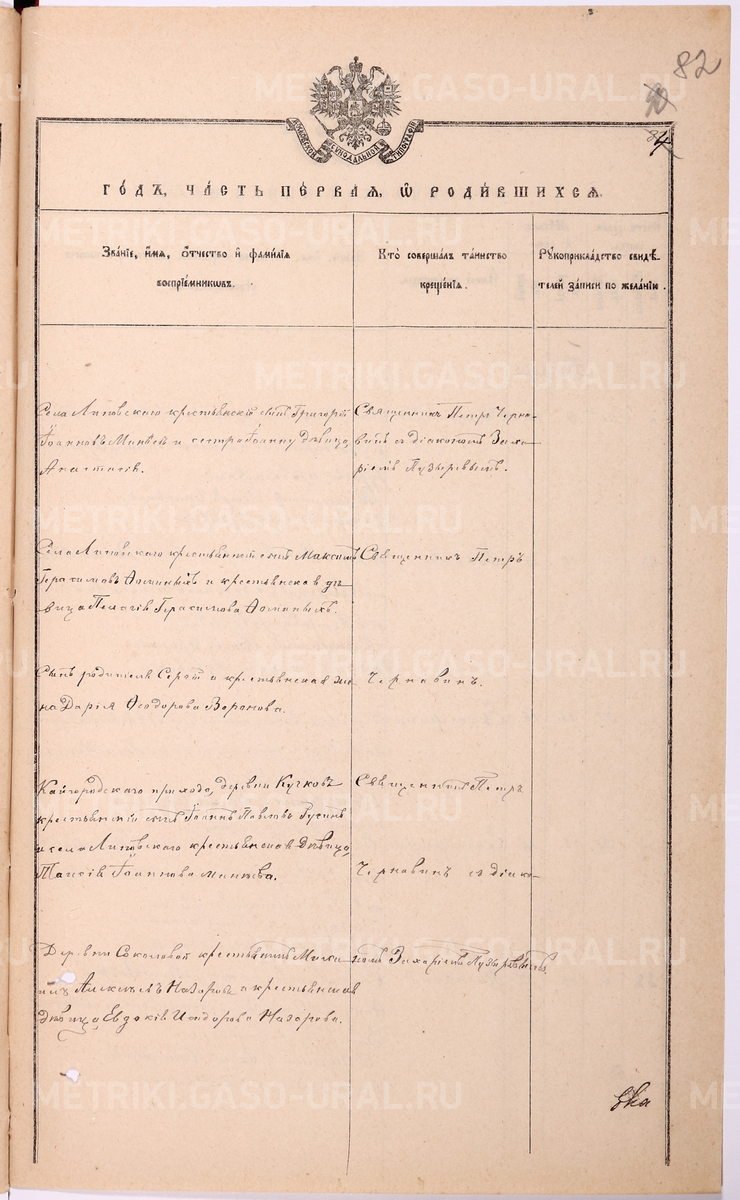 82
84
МОСКОВСКАЯ СѴНОДАЛЬНАЯ ТИПОГРАФІЯ
ГО́ДЪ, ЧА́СТЬ ПЕ́РВАЯ, Ѡ РОДИ́ВШИХСЯ.
Зва́нїе, и́мя, ѻ́тчество и҆ фами́лїя
воспрїе́мникѡвъ.
Кто̀ соверша́лъ та́инство
креще́нїя.
Рꙋкоприкла́дство свидѣ́-
телей за́писи по жела́нїю.
Села Липовского крестьянскій сынъ Григорій
Іоанновъ Минѣев и сестра Іоанну дѣвица,
Анастасія.
Священникъ Петръ Черна-
винъ съ діакономъ Заха-
ріемъ Пузыревымъ.
Села Липовского крестьянскій сынъ Максимъ
Герасимовъ и крестьянская дѣ-
вица Пелагія Герасимова
Священникъ Петръ
Сынъ родителя Сергій и крестьянская же-
на Дарія Ѳеодорова Воронова.
Чернавинъ.
Кайгородскаго прихода, деревни Кучковъ
крестьянскій сынъ Іоаннъ Павловъ Русинъ
и села Липовского крестьянская дѣвица,
Таисія Іоаннова Минѣева.
Священникъ Петръ
Чернавинъ съ діако-
Деревни Соколовой крестьянинъ Миха-
илъ Алексѣевъ Назаровъ и крестьянская
дѣвица, Евдокія Исидорова Назарова.
номъ Захаріемъ Пузыревымъ
METRIKI.GASO-URAL.RU